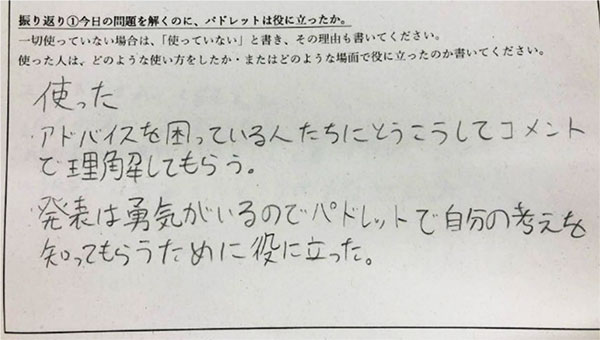 振り返り①今日の問題を解くのに、パドレットは役に立ったか。
一切使っていない場合は、「使っていない」と書き、その理由も書いてください。
使った人は、どのような使い方をしたか・またはどのような場面で役に立ったのか書いてください。
使った
・アドバイスを困っている人たちにとうこうしてコメント
で理解してもらう。
・発表は勇気がいるのでパドレットで自分の考えを
知ってもらうために役に立った。